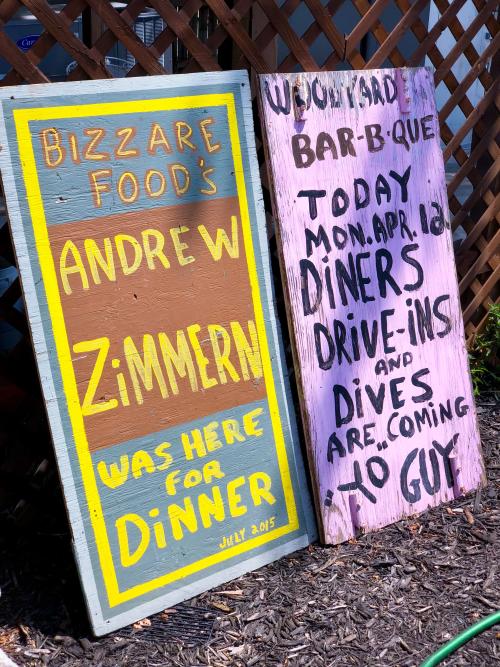 BIZZARE
FOOD'S
ANDREW
ZiMMERN
WAS HERE
FOR
DiNNER
JULY 2015
WOODYARD
BAR-B-QUE
TODAY
MON. APR. 12
DiNERS
DRIVE-iNS
AND
DiVES
ARE COMING
"YO" GUY